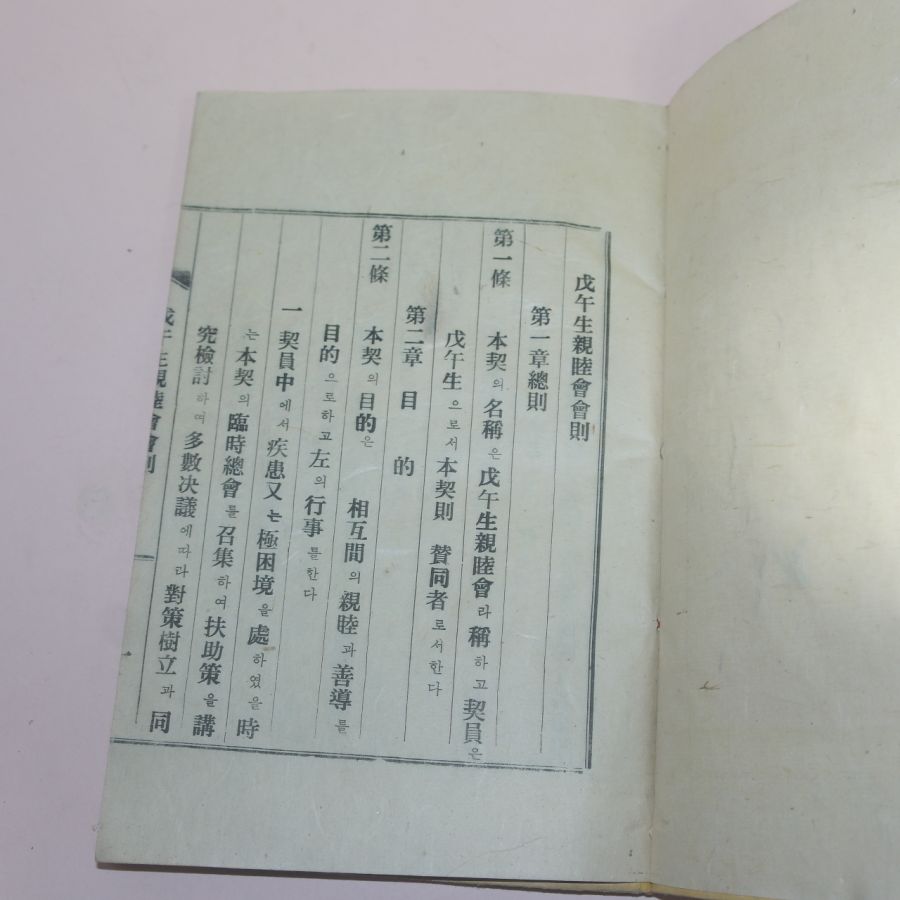 戊午生親睦會會則
第一章總則
第一條 本契의名稱은戊午生親睦會라稱하고契員은
戊午生으로서本契則 贊同者로서한다
第二章 目 的
第二條 本契의目的은 相互間의親睦과善導를
目的으로하고左의行事를한다
一 契員中에서疾患又는極困境을處하였을時
는本契의臨時總會를召集하여扶助策을講
究檢討하여多數决議에따라對策樹立과同
戊午生親睦會會則
一